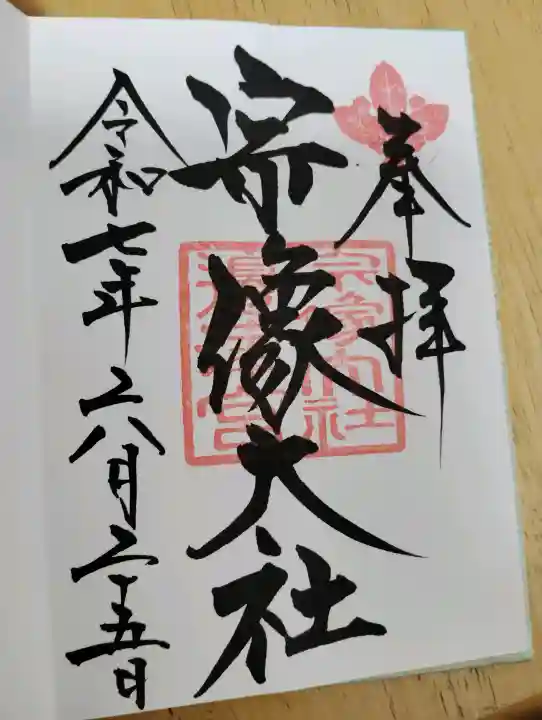 奉拝
宗像大社
令和七年六月二十五日
宗像大社